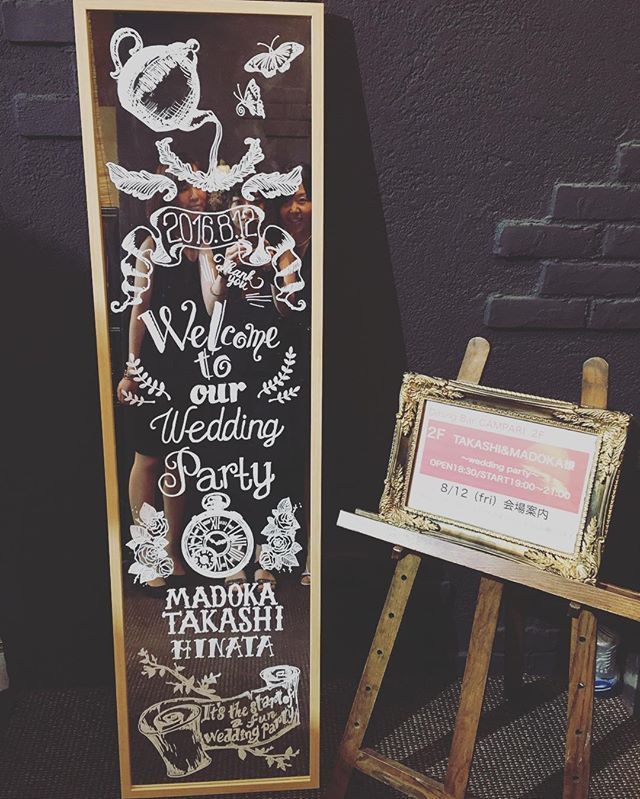 2016.8.12
Thank you
Welcome
to
our
Wedding
Party
MADOKA
TAKASHI
HINATA
It's the start of
a fun
wedding party
Dining Bar CAMPARI 2F
2F TAKASHI&MADOKA様
～wedding party～
OPEN18:30/START19:00～21:00
8/12 (fri) 会場案内